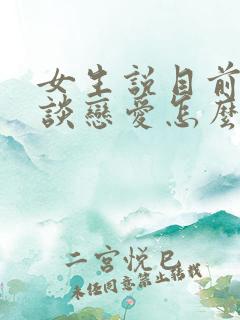 女生說目前
談戀愛怎麼
二宮悅巳
未經同意禁止轉載